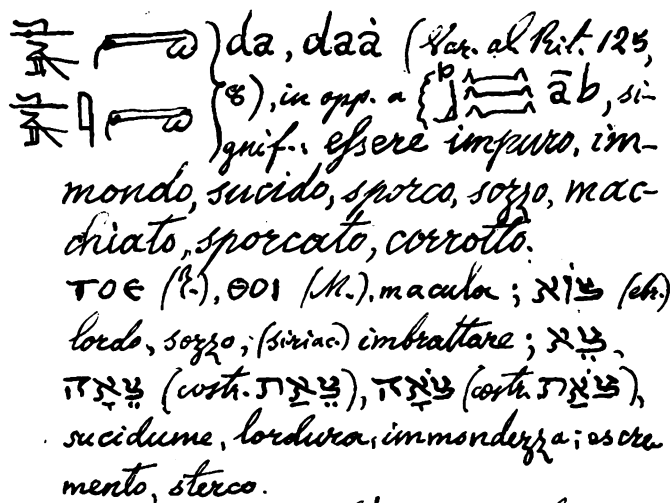 da, daà (Var. al Rit. 125,
8), in opp. a āb, si-
gnif.: essere impuro, im-
mondo, sucido, sporco, sozzo, mac-
chiato, sporcato, corrotto.
ⲧⲟⲉ (), ⲑⲟⲓ (M.), macula; צוֹא (ebr.)
lordo, sozzo; (siriac.) imbrattare; צֵא,
צֵאָה (costr. צֵאַת), צֹאָה (costr. צֹאַת),
sucidume, lordura, immondezza; escre
mento, sterco.